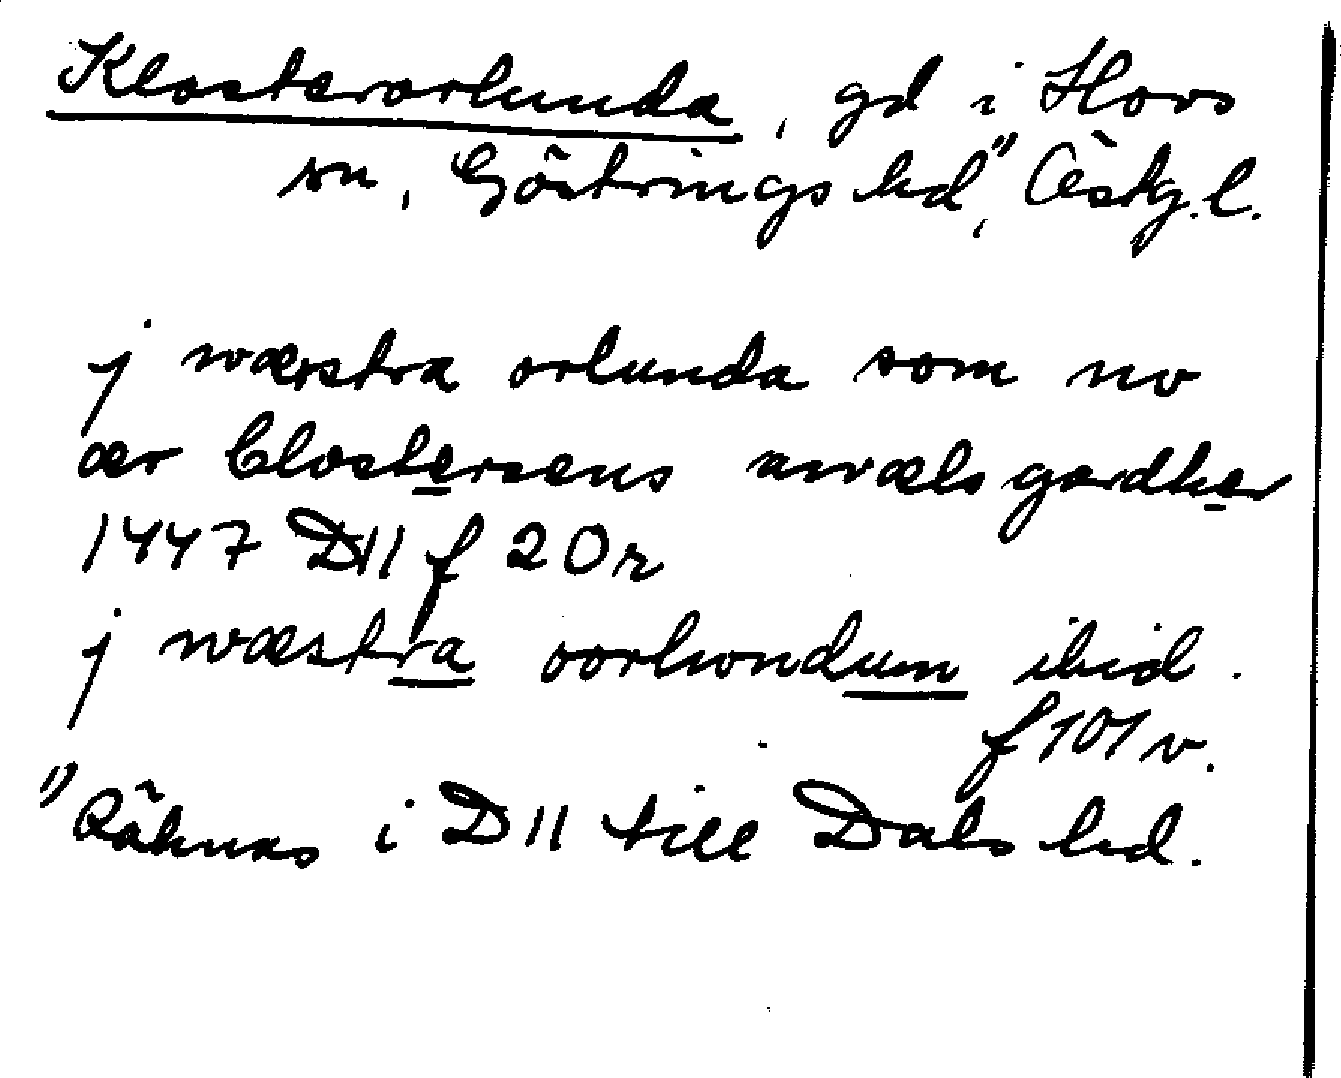 Klosterorlunda, gd i Hovs
sn, Göstrings hd", Östg.l.
j wæstra orlunda som nv
ær Clostersens awælsgardher
1447 D11 f 20r
j wæstra oorlwndum ibid.
f 101 v.
"Räknas i D11 till Dals hd.